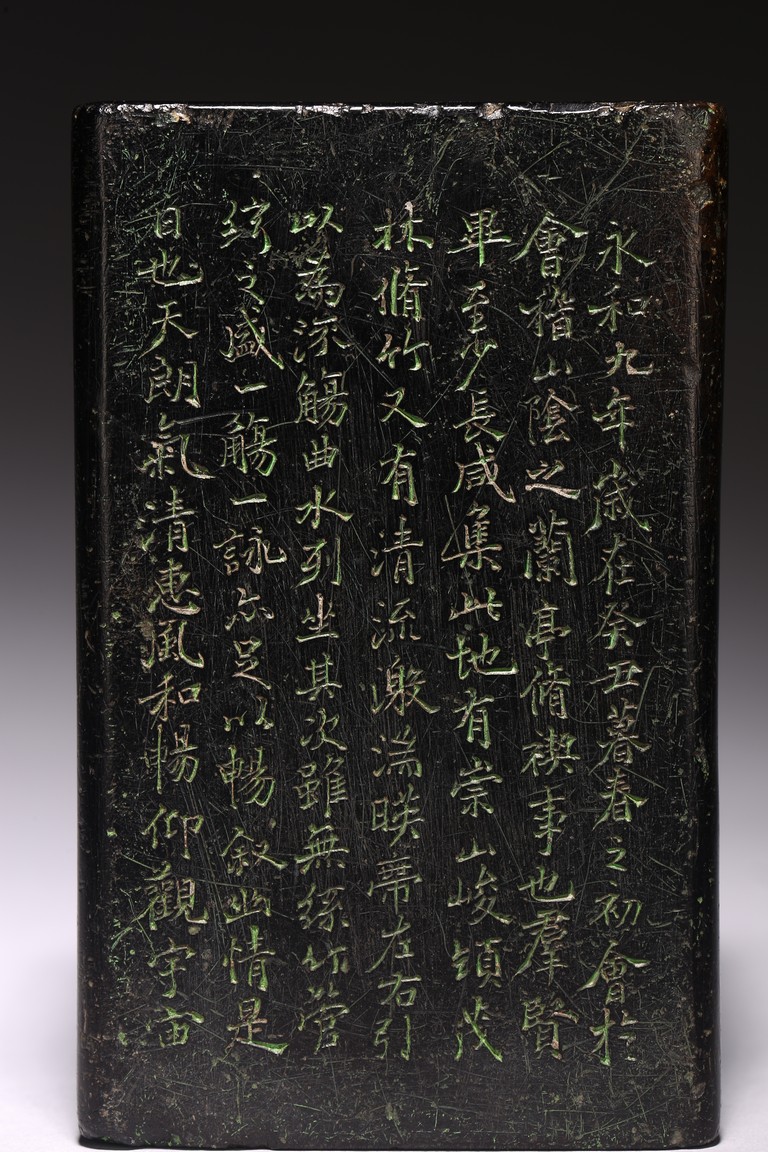 永和九年歲在癸丑暮春之初會於
會稽山陰之蘭亭脩禊事也羣賢
畢至少長咸集此地有崇山峻領茂
林脩竹又有清流激湍暎帶左右引
以為流觴曲水列坐其次雖無絲竹管
絃之盛一觴一詠亦足以暢敘幽情是
日也天朗氣清惠風和暢仰觀宇宙